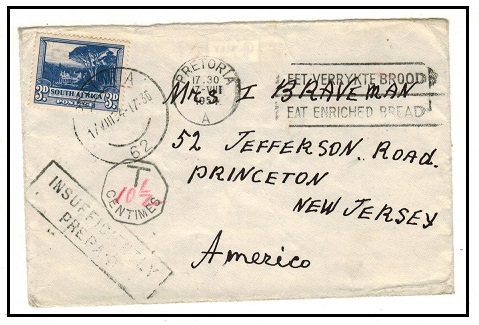 SOUTH AFRICA
3D 3D
PRETORIA
17.30
17·VIII
1954
A
EET VERRYKTE BROOD
EAT ENRICHED BREAD
62
Mrs I BRAVEMAN
52 JEFFERSON Road.
PRINCETON
NEW JERSEY
Americo
T
10
CENTIMES
INSUFFICIENTLY
PREPAID